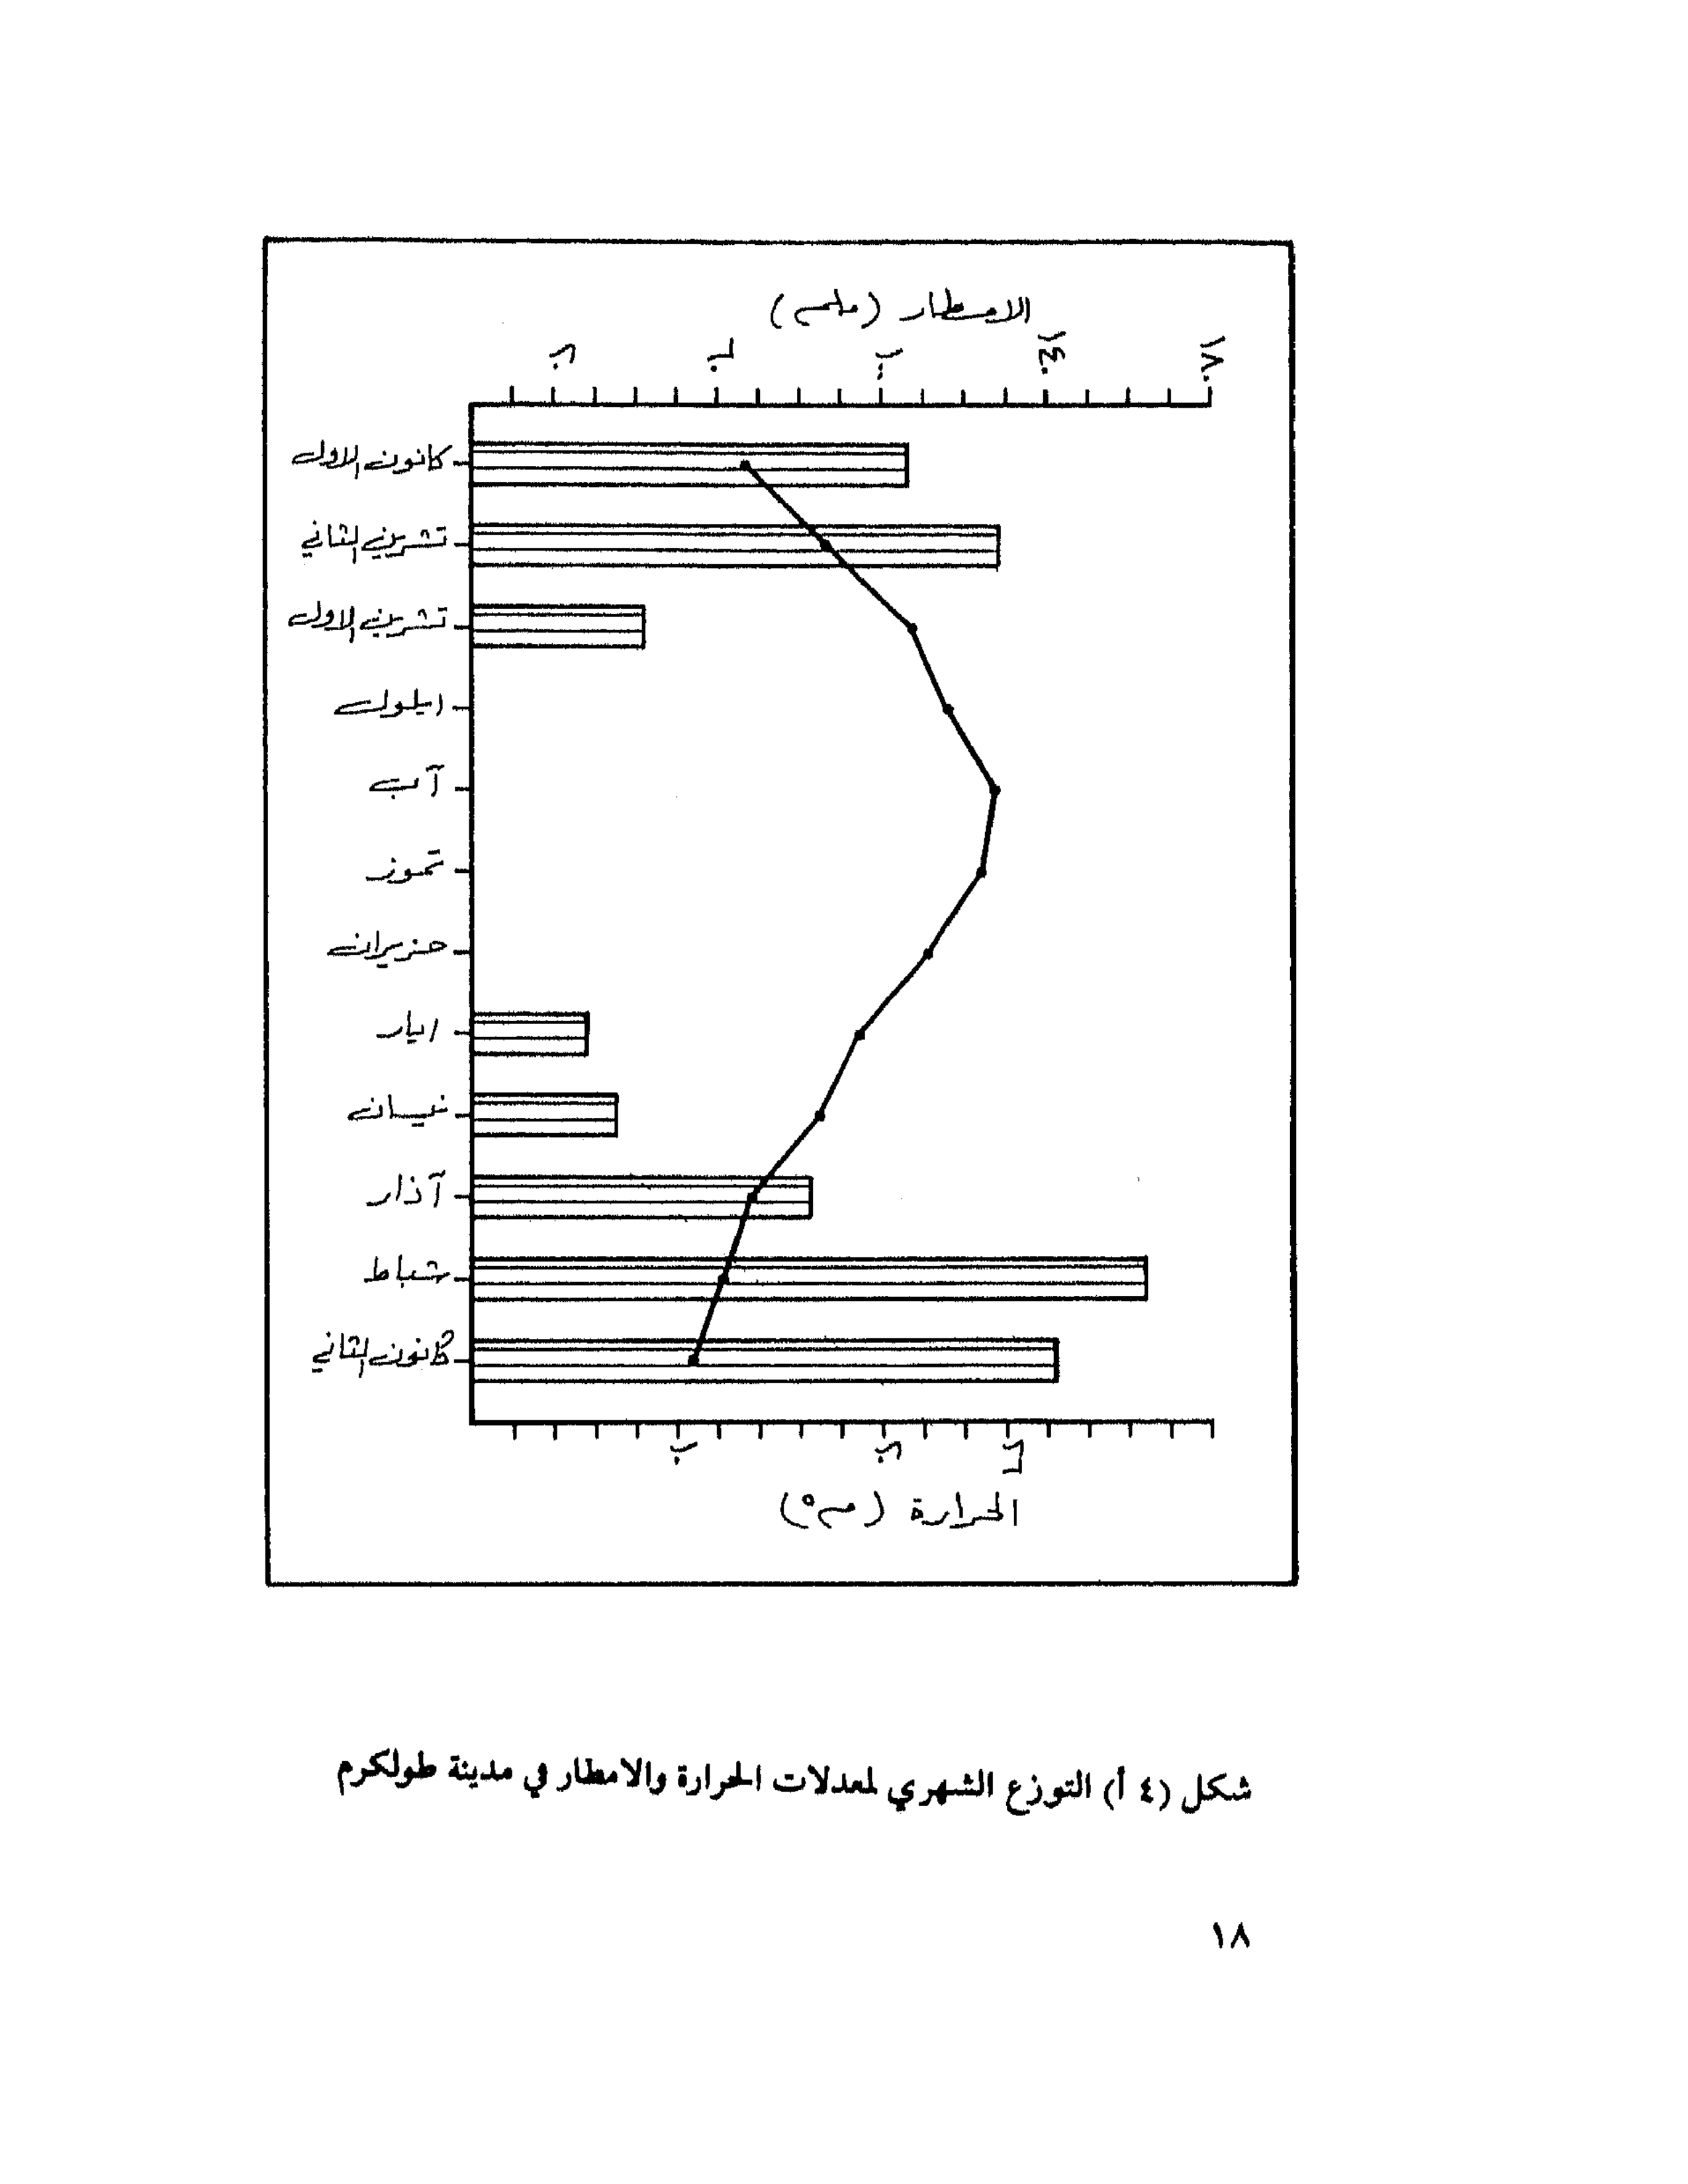 الامطار (ملم)
٢٠ ٦٠ ١٠٠ ١٤٠ ١٨٠
كانون الاول
تشرين الثاني
تشرين الاول
ايلول
آب
تموز
حزيران
ايار
نيسان
آذار
شباط
كانون الثاني
١٠ ٢٠ ٢٦
الحرارة (م°)
شكل (٤ أ) التوزع الشهري لمعدلات الحرارة والامطار في مدينة طولكرم
١٨